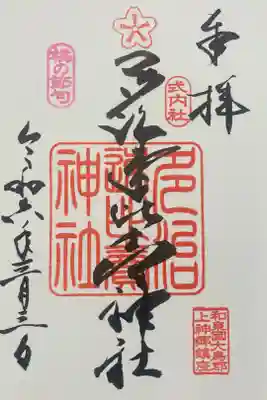 奉拝
式内社
多治速比売神社
多治速比賣神社
桃の節句
令和六年三月三日
和泉国大鳥郡
上神郷鎮座